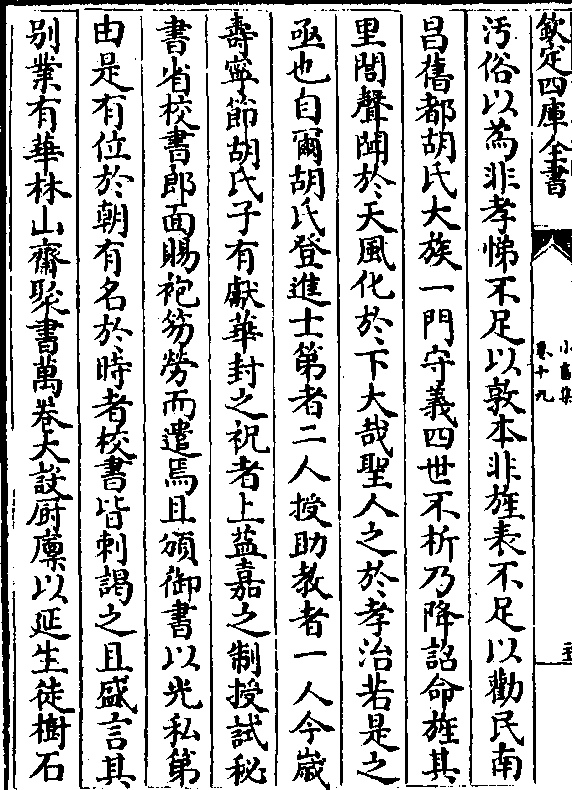 欽定四庫全書
小畜集
卷十九
汚俗以為非孝悌不足以敦本非旌表不足以勸民南
昌舊都胡氏大族一門守義四世不析乃降詔命旌其
里閭聲聞於天風化於下大哉聖人之於孝治若是之
亟也自爾胡氏登進士第者二人授助教者一人今歲
壽寧節胡氏子有獻華封之祝者上益嘉之制授試秘
書省校書郎面賜袍笏勞而遣焉且頒御書以光私第
由是有位於朝有名於時者校書皆刺謁之且盛言其
別業有華林山齋聚書萬卷大設厨廩以延生徒樹石